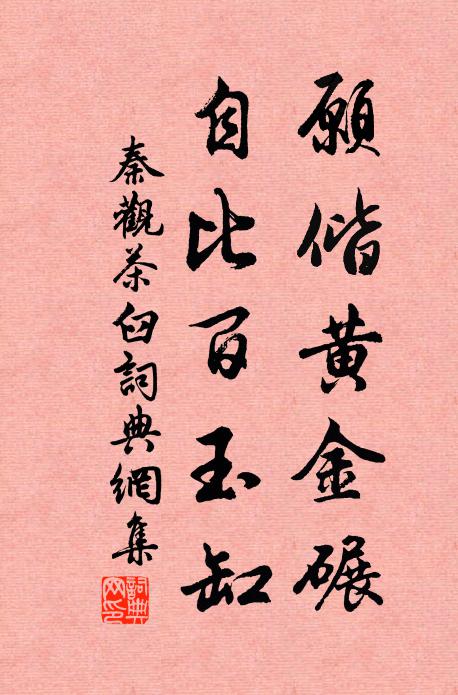 願偕黄金碾
自比百玉缸
秦觀茶臼詞典網集
詞典網印